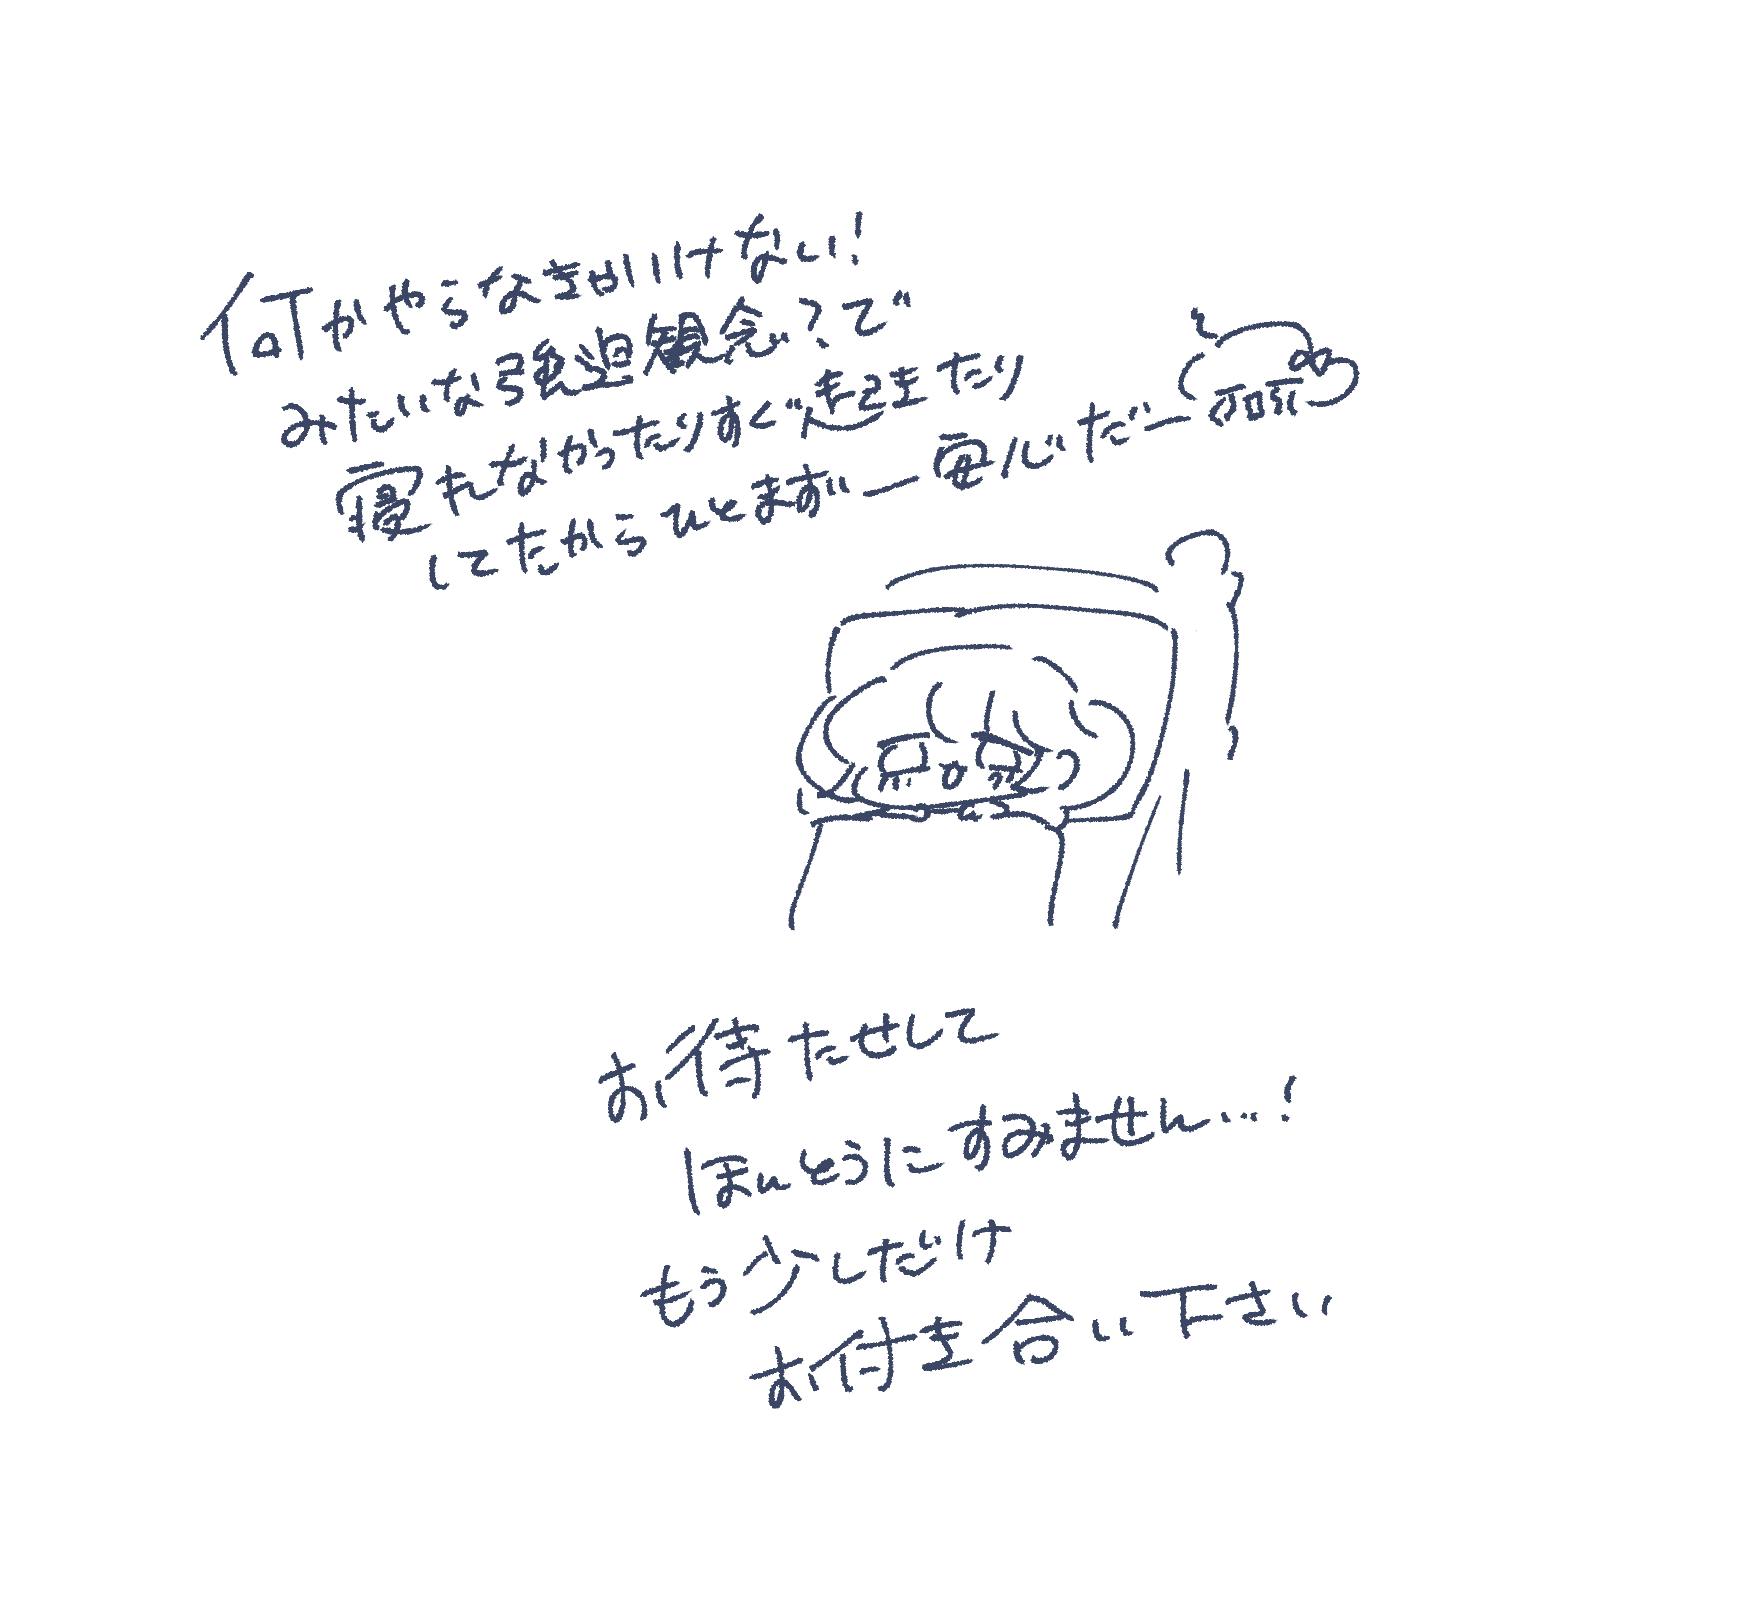 何かやらなきゃいけない!
みたいな強迫観念?で
寝れなかったりすぐ起きたり
してたからひとまずー安心だー
お待たせして
ほんとうにすみません…!
もう少しだけ
お付き合い下さい